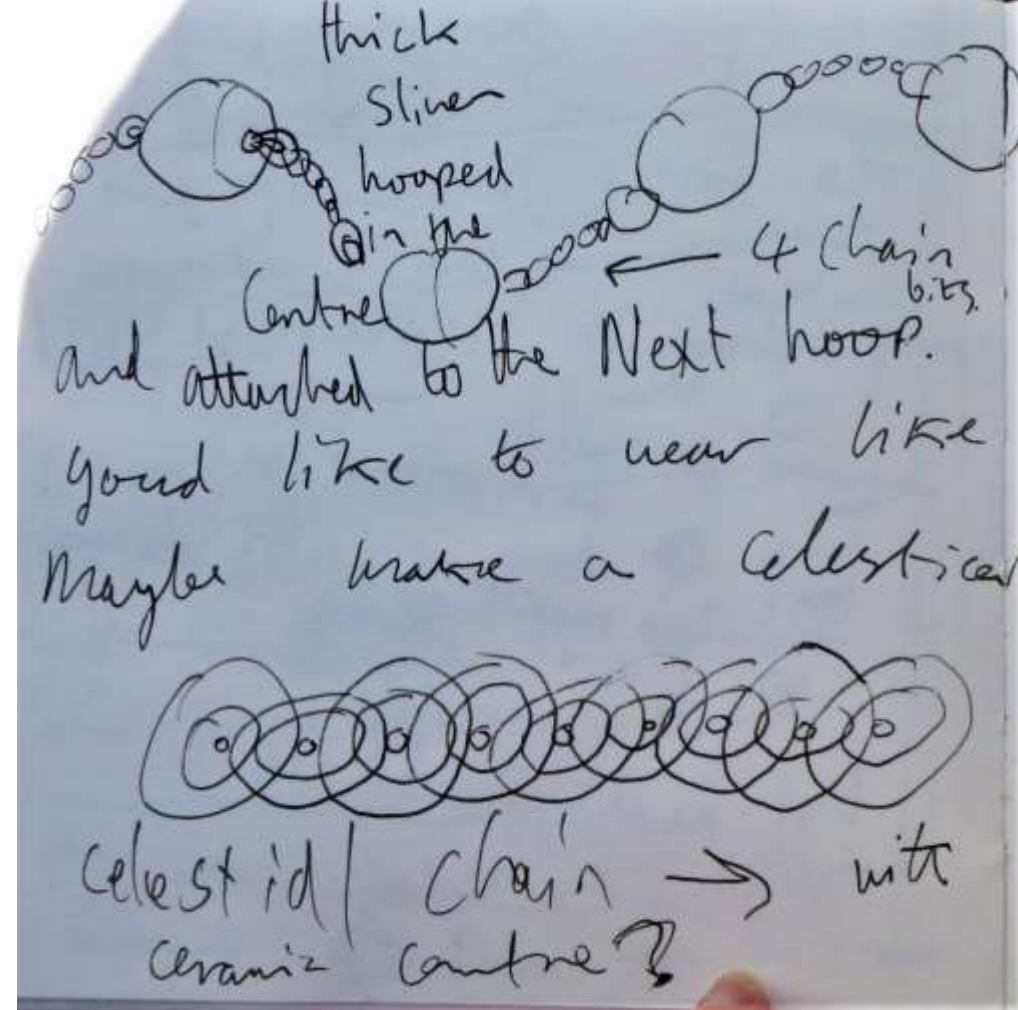 thick
sliver
hooped
in the
Centre
4 Chain
bits.
and attached to the Next hoop.
youd like to wear like
Maybe make a celestical
celestial chain → with
ceramic centre?